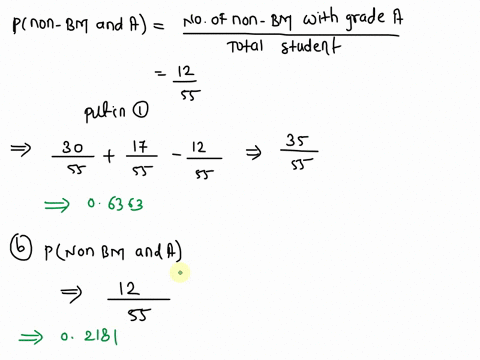 P(non-BM and A) = No. of non-BM with grade A / Total student
= 12/55
put in ①
⇒ 30/55 + 17/55 - 12/55 ⇒ 35/55
⇒ 0.6363
ⓑ P(Non BM and A)
⇒ 12/55
⇒ 0.2181